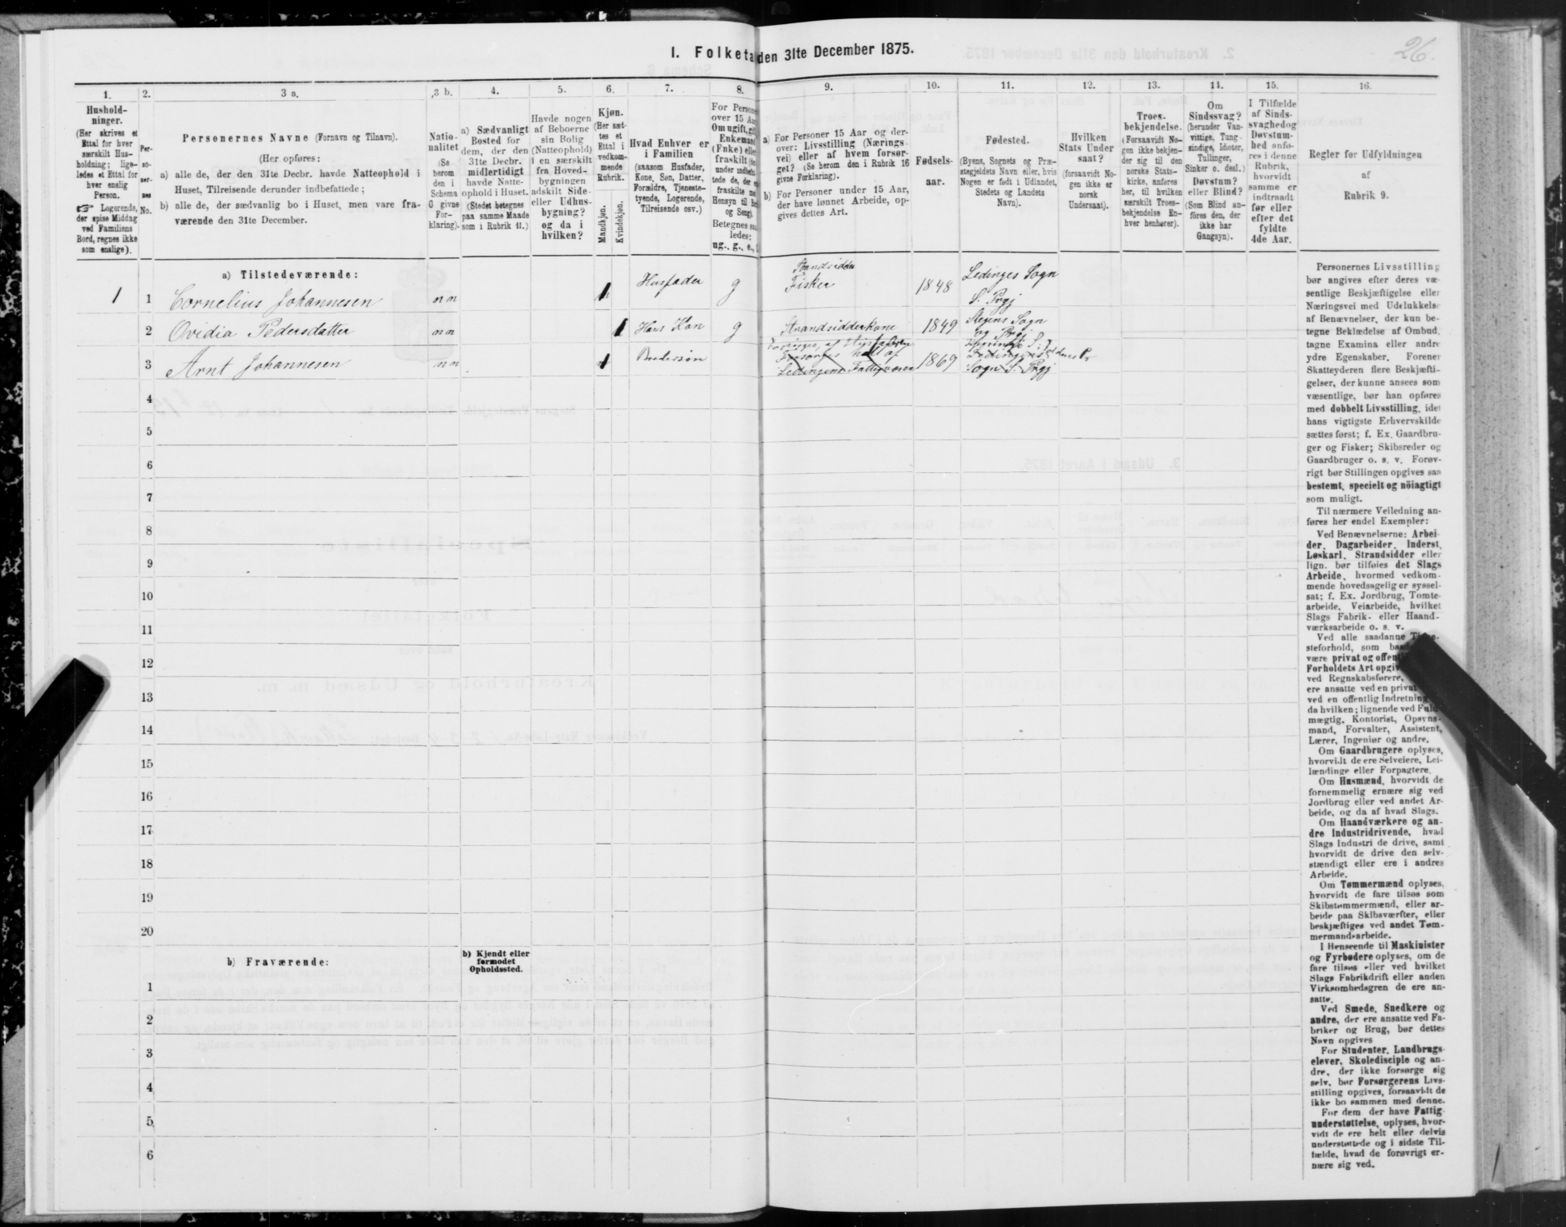 I. Folketal den 31te December 1875.
26.
1.
Hushold-
ninger.
(Her skrives et
Ettal for hver
særskilt Hus-
holdning; lige-
ledes et Ettal for
hver enslig
Person.
Logerende,
der spise Middag
ved Familiens
Bord, regnes ikke
som enslige).
2.
Per-
so-
ner-
nes
No.
3 a.
Personernes Navne (Fornavn og Tilnavn).
(Her opføres:
a) alle de, der den 31te Decbr. havde Natteophold i
Huset, Tilreisende derunder indbefattede;
b) alle de, der sædvanlig bo i Huset, men vare fra-
værende den 31te December.
3 b.
Natio-
nalitet
(Se
herom
den i
Schema
G givne
For-
klaring).
4.
a) Sædvanligt
Bosted for
dem, der den
31te Decbr.
midlertidigt
havde Natte-
ophold i Huset.
(Stedet betegnes
paa samme Maade
som i Rubrik 11.)
5.
Havde nogen
af Beboerne
sin Bolig
(Natteophold)
i en særskilt
fra Hoved-
bygningen
adskilt Side-
eller Udhus-
bygning?
og da i
hvilken?
6.
Kjøn.
(Her sæt-
tes et
Ettal i
vedkom-
mende
Rubrik.
Mandkjøn.
Kvindekjøn.
7.
Hvad Enhver er
i Familien
(saasom Husfader,
Kone, Søn, Datter,
Forældre, Tjeneste-
tyende, Logerende,
Tilreisende osv.)
8.
For Personer
over 15 Aar
Om ugift, gift,
Enkemand
(Enke) eller
fraskilt
Betegnes saa-
ledes:
ug., g., e.,
9.
a) For Personer 15 Aar og der-
over: Livsstilling (Nærings-
vei) eller af hvem forsør-
get? (Se herom den i Rubrik 16
givne Forklaring).
b) For Personer under 15 Aar,
der have lønnet Arbeide, op-
gives dettes Art.
10.
Fødsels-
aar.
11.
Fødested.
(Byens, Sognets og Præ-
stegjeldets Navn eller, hvis
Nogen er født i Udlandet,
Stedets og Landets
Navn).
12.
Hvilken
Stats Under
saat?
(forsaavidt No-
gen ikke er
norsk
Undersaat).
13.
Troes-
bekjendelse.
(Forsaavidt No-
gen ikke bekjen-
der sig til den
norske Stats-
kirke, anføres
her, til hvilken
særskilt Troes-
bekjendelse En-
hver henhører).
14.
Om
Sindssvag?
(herunder Van-
vittige, Tung-
sindige, Idioter,
Tullinger,
Sinker o. desl.)
Døvstum?
eller Blind?
(Som Blind an-
føres den, der
ikke har
Gangsyn).
15.
I Tilfælde
af Sinds-
svaghed og
Døvstum-
hed anfø-
res i denne
Rubrik,
hvorvidt
samme er
indtraadt
før eller
efter det
fyldte
4de Aar.
16.
Regler for Udfyldningen
af
Rubrik 9.
a) Tilstedeværende:
1 1 Cornelius Johannesen nn 1 Husfader g Strandsidder
Fisker 1848 Ledinges Sogn
S. Prgj
2 Ovidia Pedersdatter nn 1 Hans Kon g Strandsidderkone 1849 Stegens Sogn
og Prgj
3 Arnt Johannesen nn 1 Brodersøn
Ledingens Fattigvæsen 1869
Sogn S. Prgj
4
5
6
7
8
9
10
11
12
13
14
15
16
17
18
19
20
b) Fraværende:
b) Kjendt eller
formodet
Opholdssted.
1
2
3
4
5
6
Personernes Livsstilling
bør angives efter deres væ-
sentlige Beskjæftigelse eller
Næringsvei med Udelukkelse
af Benævnelser, der kun be-
tegne Beklædelse af Ombud,
tagne Examina eller andre
ydre Egenskaber. Forener
Skatteyderen flere Beskjæfti-
gelser, der kunne ansees som
væsentlige, bør han opføres
med dobbelt Livsstilling, idet
hans vigtigste Erhvervskilde
sættes først; f. Ex. Gaardbru-
ger og Fisker; Skibsreder og
Gaardbruger o. s. v. Forøv-
rigt bør Stillingen opgives saa
bestemt, specielt og nöiagtigt
som muligt.
Til nærmere Veiledning an-
føres her endel Exempler:
Ved Benævnelserne: Arbei-
der, Dagarbeider, Inderst,
Løskarl, Strandsidder eller
lign. bør tilføies det Slags
Arbeide, hvormed vedkom-
mende hovedsagelig er syssel-
sat; f. Ex. Jordbrug, Tomte-
arbeide, Veiarbeide, hvilket
Slags Fabrik- eller Haand-
værksarbeide o. s. v.
Ved alle saadanne
steforhold, som
være privat og
Forholdets Art
ved Regnskabsførere,
ere ansatte ved en
ved en offentlig Indretning
da hvilken; lignende ved Fuld-
mægtig, Kontorist, Opsyns-
mand, Forvalter, Assistent,
Lærer, Ingeniør og andre.
Om Gaardbrugere oplyses,
hvorvidt de ere Selveiere, Lei-
lændinge eller Forpagtere.
Om Husmænd, hvorvidt de
fornemmelig ernære sig ved
Jordbrug eller ved andet Ar-
beide, og da af hvad Slags.
Om Haandværkere og an-
dre Industridrivende, hvad
Slags Industri de drive, samt
hvorvidt de drive den selv-
stændigt eller ere i andres
Arbeide.
Om Tømmermænd oplyses,
hvorvidt de fare tilsøs som
Skibstømmermænd, eller ar-
beide paa Skibsværfter, eller
beskjæftiges ved andet Tøm-
mermandsarbeide.
I Henseende til Maskinister
og Fyrbødere oplyses, om de
fare tilsøs eller ved hvilket
Slags Fabrikdrift eller anden
Virksomhedsgren de ere an-
satte.
Ved Smede, Snedkere og
andre, der ere ansatte ved Fa-
briker og Brug, bør dettes
Navn opgives
For Studenter, Landbrugs-
elever, Skoledisciple og an-
dre, der ikke forsørge sig
selv, bør Forsørgerens Livs-
stilling opgives, forsaavidt de
ikke bo sammen med denne.
For dem der have Fattig-
understøttelse, oplyses, hvor-
vidt de ere helt eller delvis
understøttede og i sidste Til-
fælde, hvad de forøvrigt er-
nære sig ved.